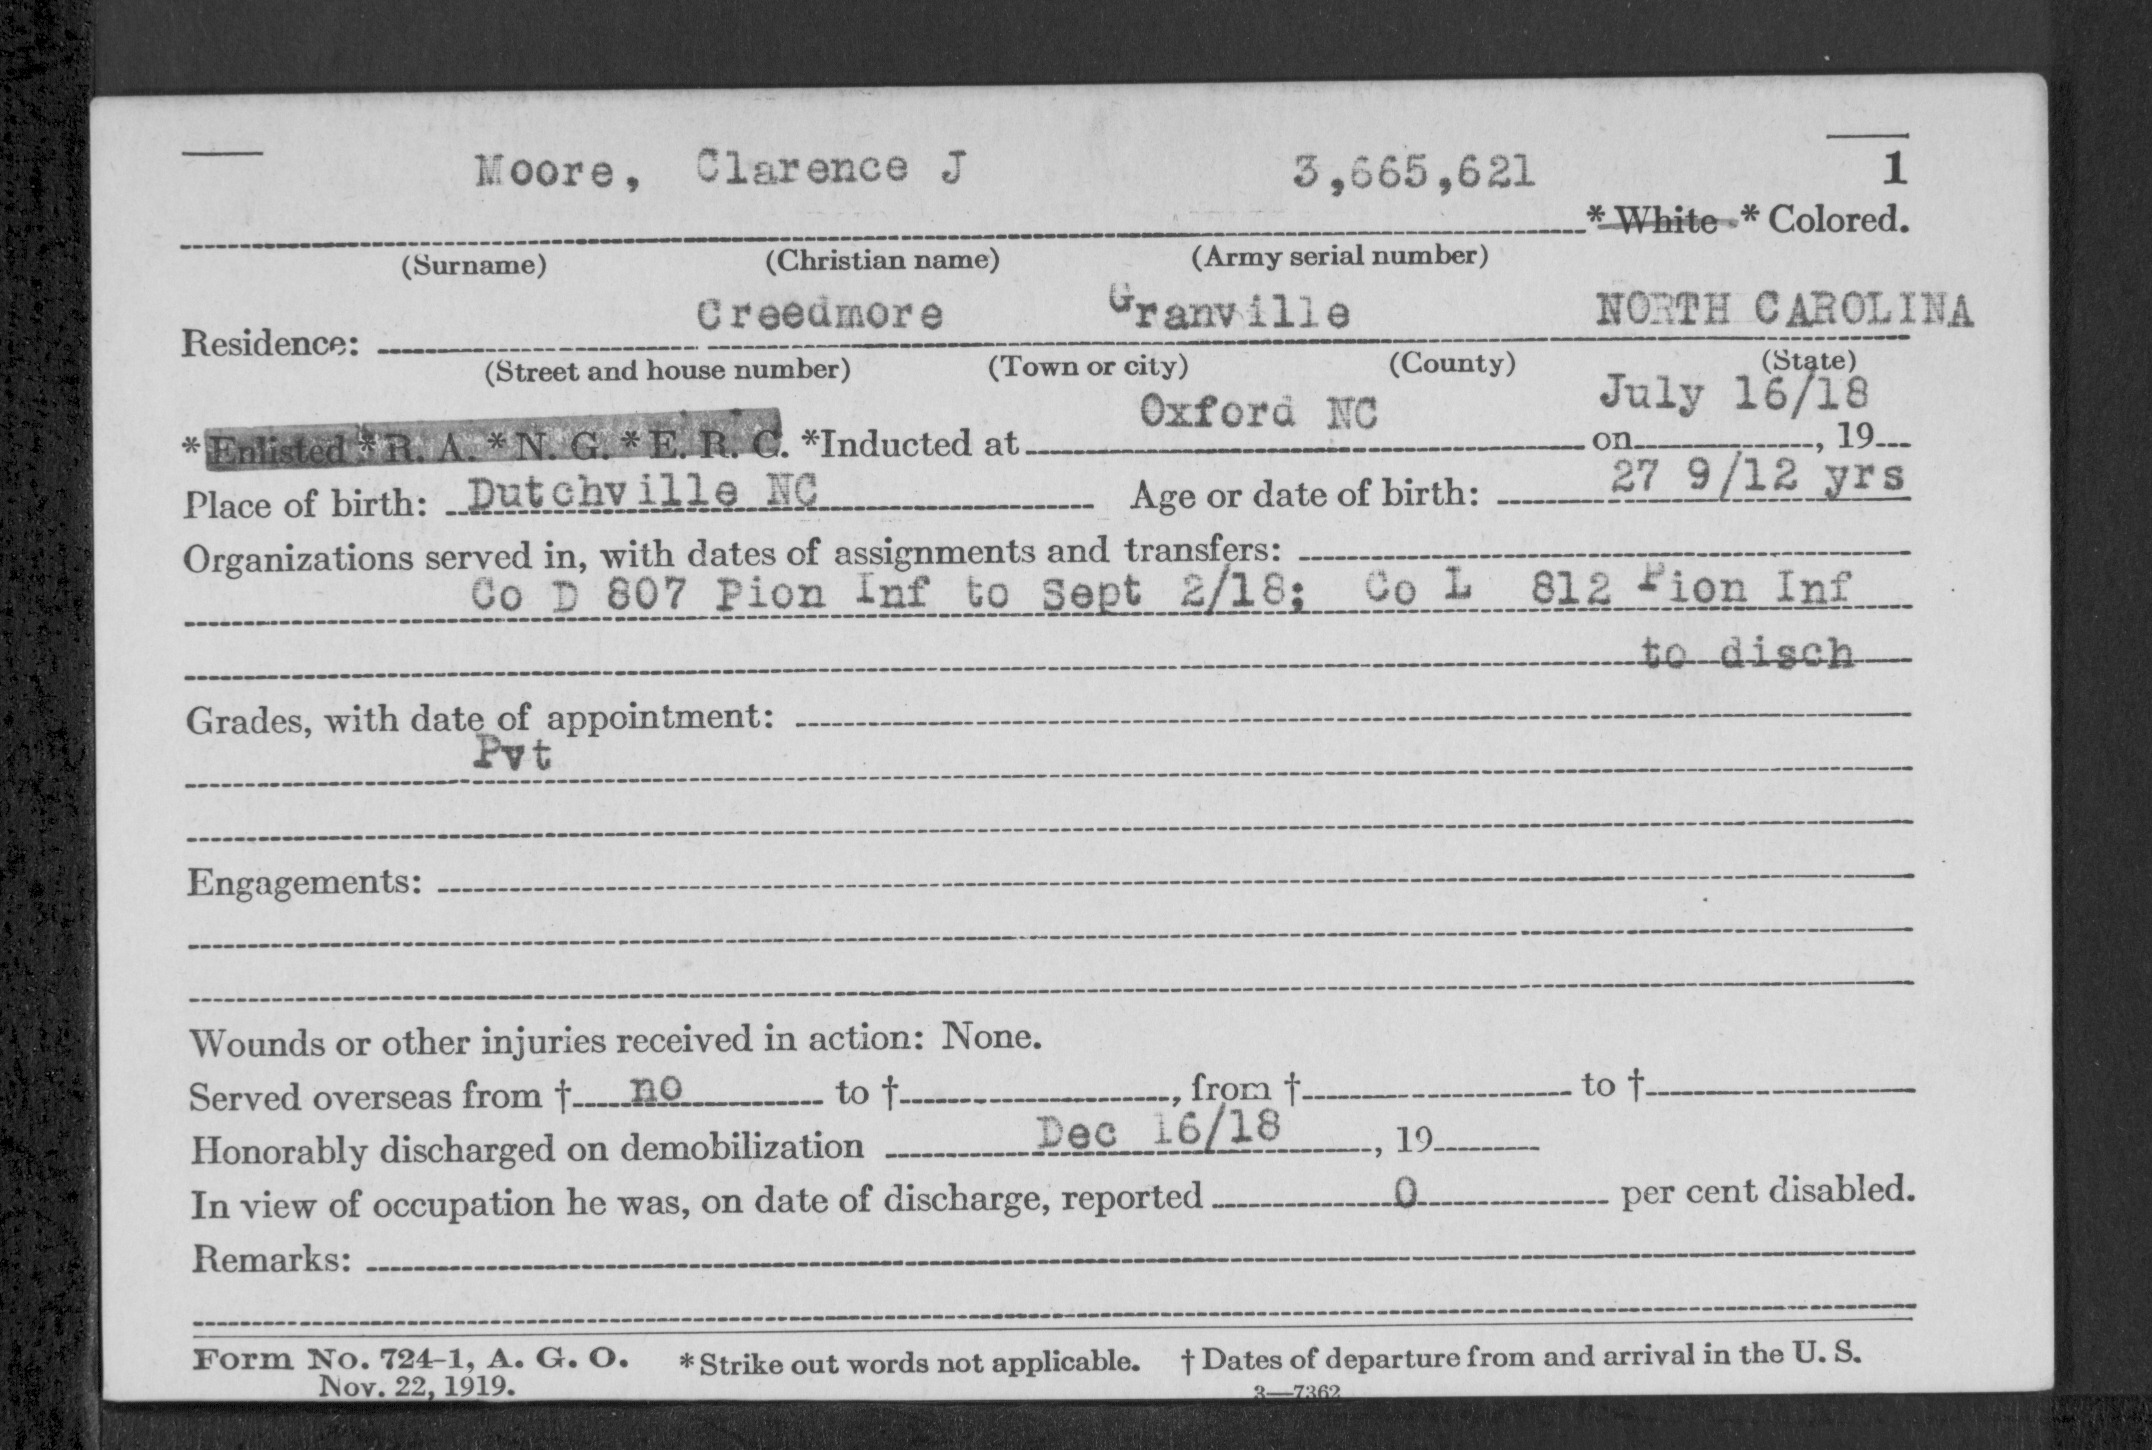 Moore, Clarence J 3,665,621 1
* White * Colored.
(Surname) (Christian name) (Army serial number)
Creedmore Granville NORTH CAROLINA
Residence:
(Street and house number) (Town or city) (County) (State)
Oxford NC July 16/18
* Enlisted * R. A. * N. G. * E. R. C. *Inducted at on , 19
Place of birth: Dutchville NC Age or date of birth: 27 9/12 yrs
Organizations served in, with dates of assignments and transfers:
Co D 807 Pion Inf to Sept 2/18; Co L 812 Pion Inf
to disch
Grades, with date of appointment:
Pvt
Engagements:
Wounds or other injuries received in action: None.
Served overseas from † no to † , from † to †
Honorably discharged on demobilization Dec 16/18 , 19
In view of occupation he was, on date of discharge, reported 0 per cent disabled.
Remarks:
Form No. 724-1, A. G. O. * Strike out words not applicable. † Dates of departure from and arrival in the U. S.
Nov. 22, 1919. 3—7362